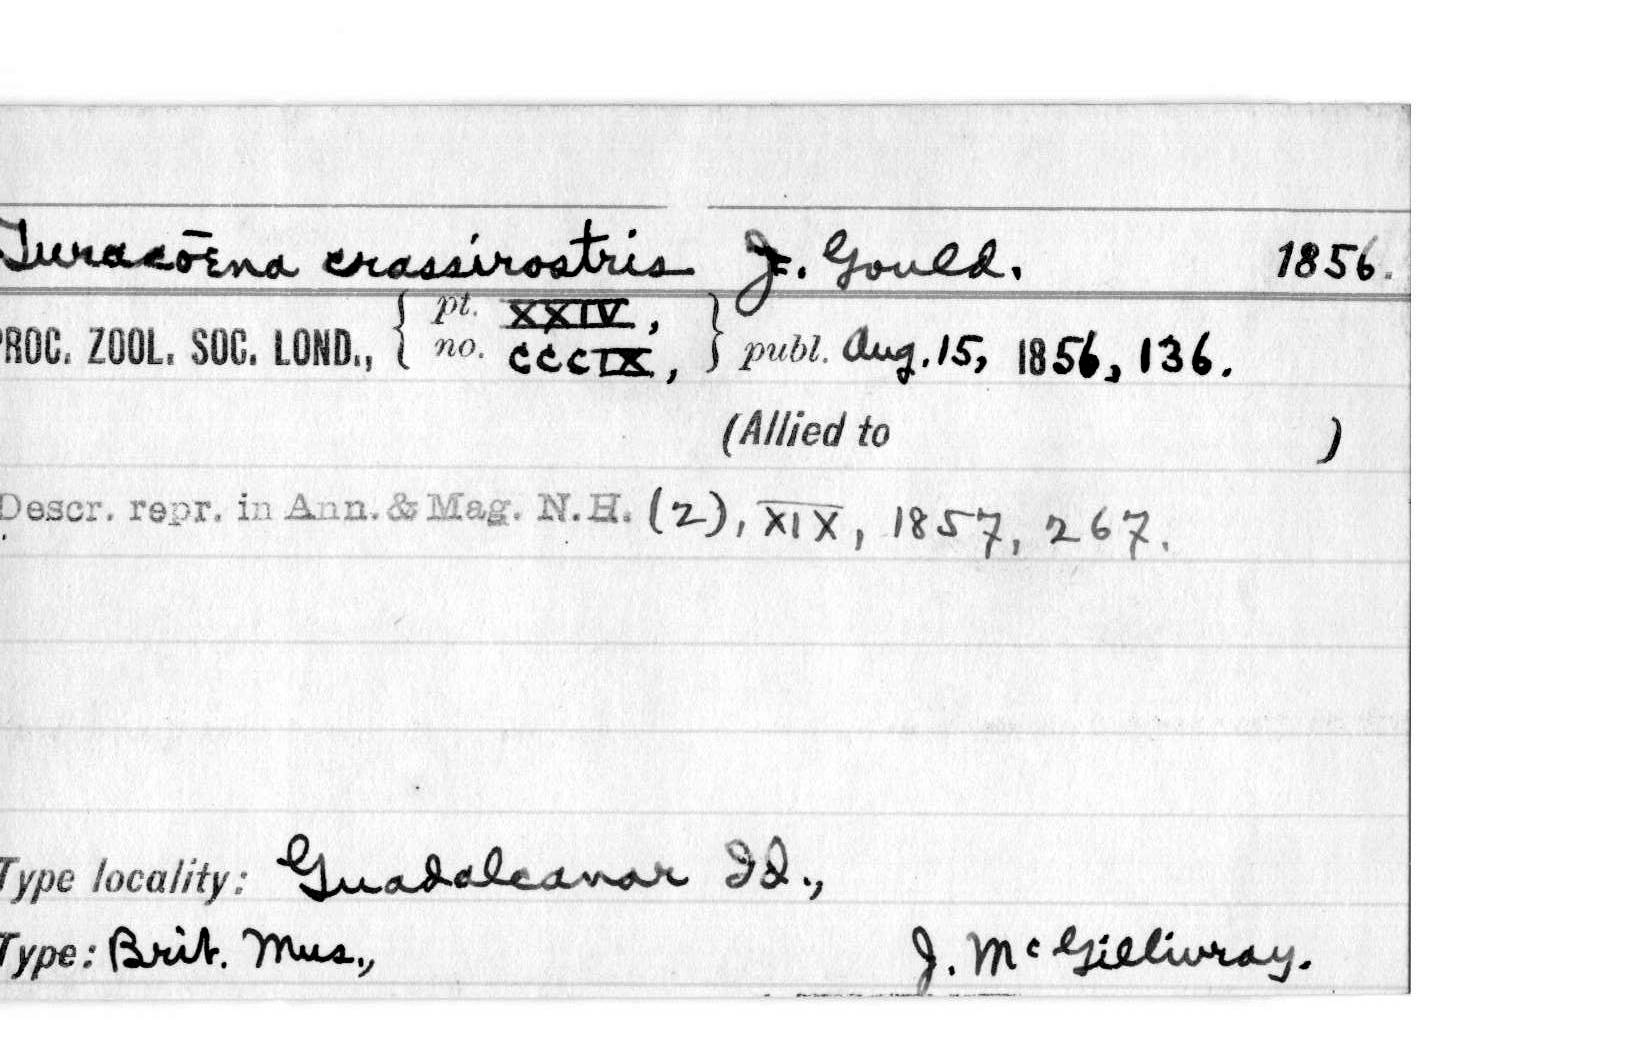 Turacōena crassirostris J. Gould. 1856.
PROC. ZOOL. SOC. LOND., { pt. XXIV, no. CCCIX, } publ. Aug. 15, 1856, 136.
(Allied to )
Descr. repr. in Ann. & Mag. N.H. (2), XIX, 1857, 267.
Type locality: Guadalcanar Id.,
Type: Brit. Mus., J. McGillivray.